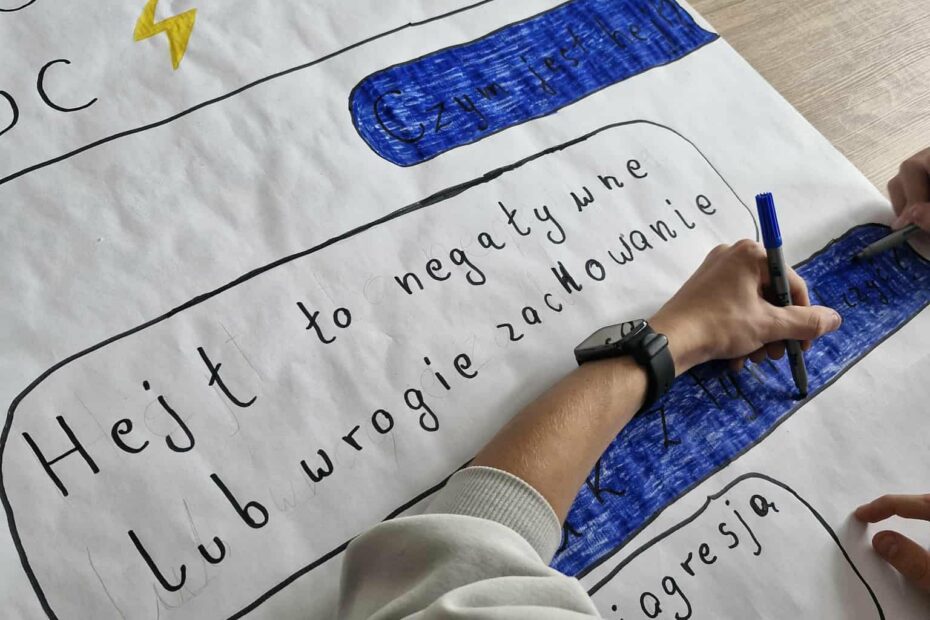 OC
Czym jest hejt
Hejt to negatywne
lub wrogie zachowanie
agresją